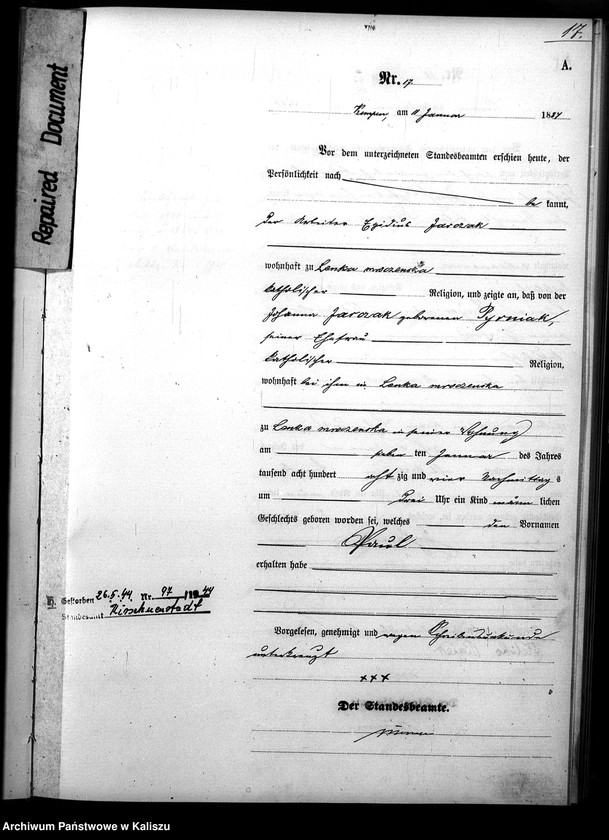 17.
Repaired Document
A.
Nr. 17
Kempen, am 11 Januar 1884
Vor dem unterzeichneten Standesbeamten erschien heute, der
Persönlichkeit nach
be kannt,
der Arbeiter Egidius Jarozak
wohnhaft zu Lenka mroczenska
katholischer Religion, und zeigte an, daß von der
Johanna Jarozak geborenen Pyrniak,
seiner Ehefrau
katholischer Religion,
wohnhaft bei ihm in Lenka mroczenska
zu Lenka mroczenska in seiner Wohnung
am sieben ten Januar des Jahres
tausend acht hundert acht zig und vier Nachmittag s
um drei Uhr ein Kind männ lichen
Geschlechts geboren worden sei, welches den Vornamen
Paul
erhalten habe
H. Gestorben 26.5.44 Nr. 97 /1944
Standesamt Kirschnerstadt
Vorgelesen, genehmigt und wegen Schreibensunkunde
unterkreuzt
+++
Der Standesbeamte.
Archiwum Państwowe w Kaliszu